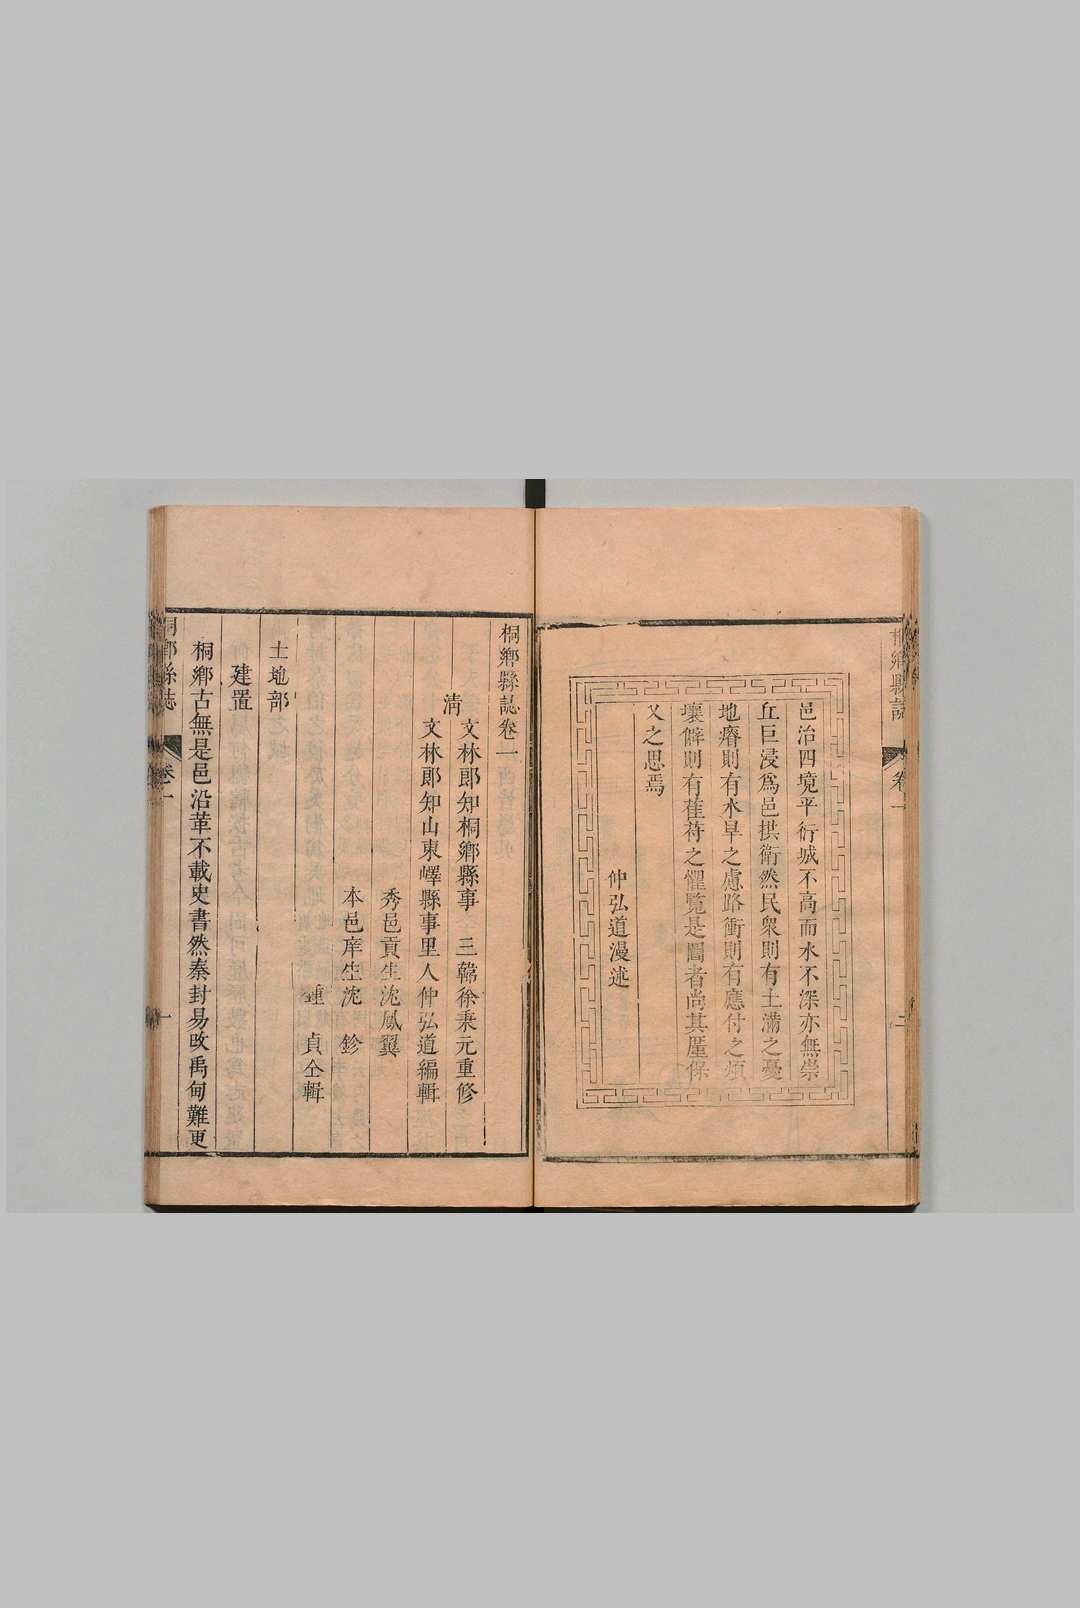 桐鄉縣誌
卷一
二
邑治四境平衍城不高而水不深亦無崇
丘巨浸爲邑拱衛然民衆則有土滿之憂
地瘠則有水旱之慮路衝則有應付之煩
壤僻則有萑苻之懼覽是圖者尚其厪保
乂之思焉
仲弘道漫述
桐鄉縣誌卷一
清
文林郎知桐鄉縣事三韓徐秉元重修
文林郎知山東嶧縣事里人仲弘道編輯
秀邑貢生沈鳳翼
本邑庠生沈鉁
鍾貞仝輯
土地部
建置
桐鄉古無是邑沿革不載史書然秦封易攺禹甸難更
桐鄉縣誌
卷一
一